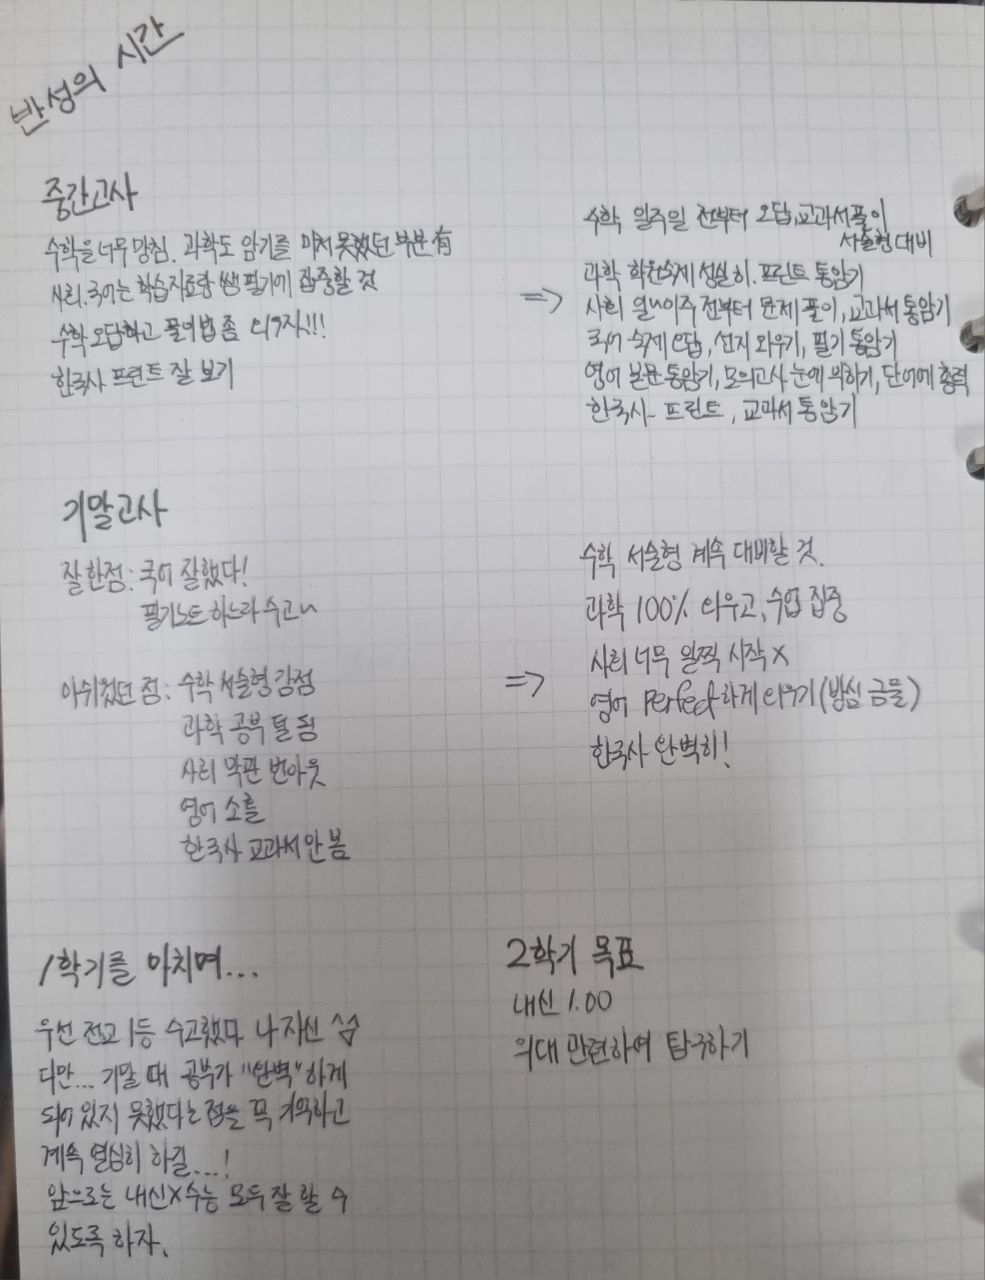 반성의 시간
중간고사
수학을 너무 망침. 과학도 암기를 미처 못했던 부분 有
사회, 국어는 학습자료랑 쌤 필기에 집중할 것
수학 오답하고 풀이법 좀 외우자!!!
한국사 프린트 잘 보기
⇒
수학 일주일 전부터 오답, 교과서풀이
서술형 대비
과학 학원숙제 성실히. 프린트 통암기
사회 일~이주 전부터 문제 풀이, 교과서 통암기
국어 숙제 오답, 선지 외우기, 필기 통암기
영어 본문 통암기, 모의고사 눈에 익히기, 단어에 총력
한국사- 프린트, 교과서 통암기
기말고사
잘한점: 국어 잘했다!
필기노트 하느라 수고~
아쉬웠던 점: 수학 서술형 감점
과학 공부 덜 됨
사회 막판 번아웃
영어 소홀
한국사 교과서 안 봄
⇒
수학 서술형 계속 대비할 것.
과학 100% 외우고, 수업 집중
사회 너무 일찍 시작 X
영어 perfect하게 외우기 (방심 금물)
한국사 완벽히!
1학기를 마치며...
우선 전교 1등 수고했다 나 자신
다만... 기말 때 공부가 "완벽"하게
되어 있지 못했다는 점을 꼭 기억하고
계속 열심히 하길...!
앞으로는 내신X수능 모두 잘 할 수
있도록 하자.
2학기 목표
내신 1.00
의대 관련하여 탐구하기